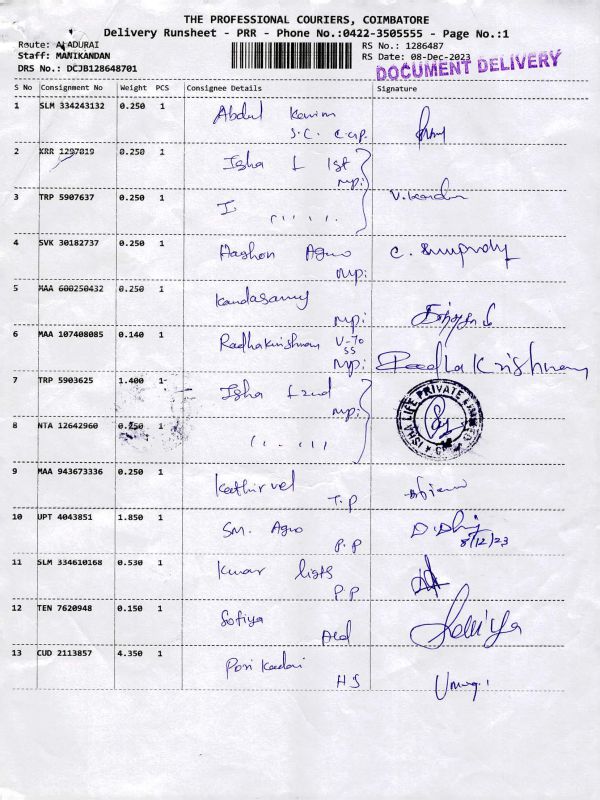 THE PROFESSIONAL COURIERS, COIMBATORE
Delivery Runsheet - PRR - Phone No.:0422-3505555 - Page No.:1
Route: ALADURAI
RS No.: 1286487
Staff: MANIKANDAN
RS Date: 08-Dec-2023
DRS No.: DCJB128648701
DOCUMENT DELIVERY
S No Consignment No Weight PCS Consignee Details Signature
1 SLM 334243132 0.250 1 Abdul
S.C.
2 KRR 1297019 0.250 1 Isha L 1st
mp:
3 TRP 5907637 0.250 1 I
4 SVK 30182737 0.250 1 Agro
mp:
5 MAA 600250432 0.250 1 Kandasamy
mp:
6 MAA 107408085 0.140 1 Radhakrishnan V-70
SS
mp: Radha Krishnan
7 TRP 5903625 1.400 1 Isha
mp:
ISHA LIFE PRIVATE LIMITED
8 NTA 12642960 0.250 1
9 MAA 943673336 0.250 1 Kathirvel
T.P
10 UPT 4043851 1.850 1 SM. Agro
P.P 8/12/23
11 SLM 334610168 0.530 1 Kumar
P.P
12 TEN 7620948 0.150 1 Sofiya
13 CUD 2113857 4.350 1 Pori Kadai
HS